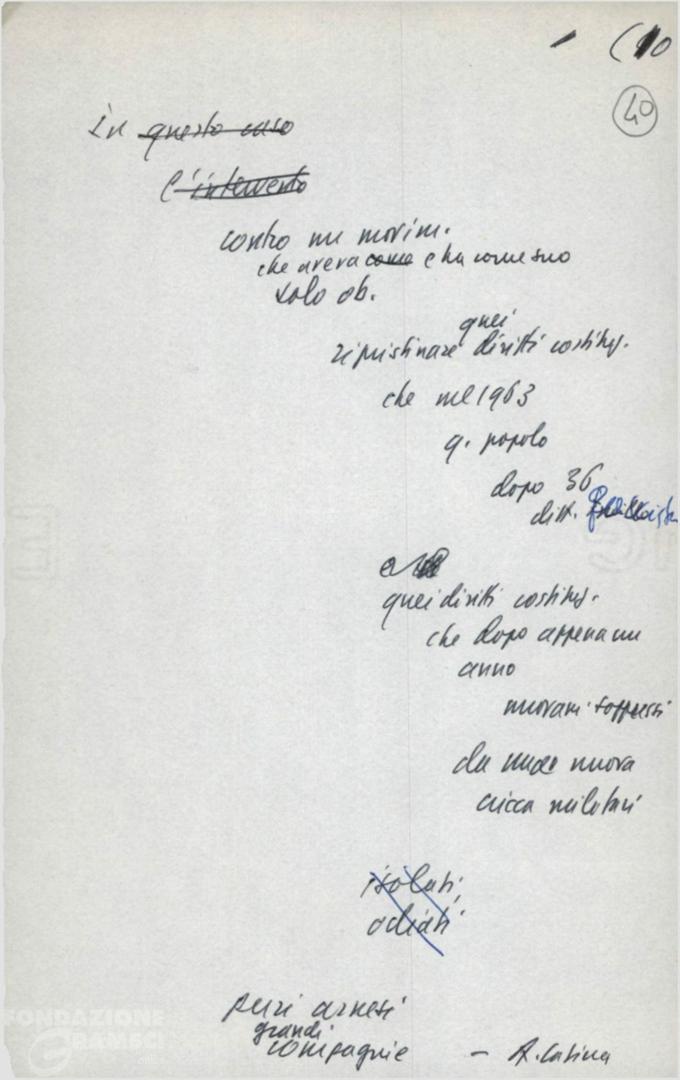 (10
40
In questo caso
l'intervento
contro un movim.
che aveva come e ha come suo
solo ob.
quei
ripristinare diritti costituz.
che nel 1963
q. popolo
dopo 36
ditt.
quei diritti costituz.
che dopo appena un
anno
nuovam. soppressi
da una nuova
cricca militari
isolati,
odiati
puri arnesi
grandi
compagnie – A. Latina
FONDAZIONE
GRAMSCI